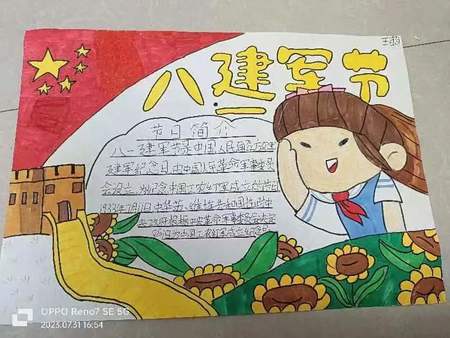 八·一建军节
节日简介
八一建军节是中国人民解放军
建军纪念日由中国人民革命军事委员
会设立,为纪念中国工农红军成立的节日
1933年7月11日,中华苏维埃共和国临时中
央政府根据中央革命军事委员会
工农红军成立纪念日
OPPO Reno7 SE 5G
2023.07.31 16:54